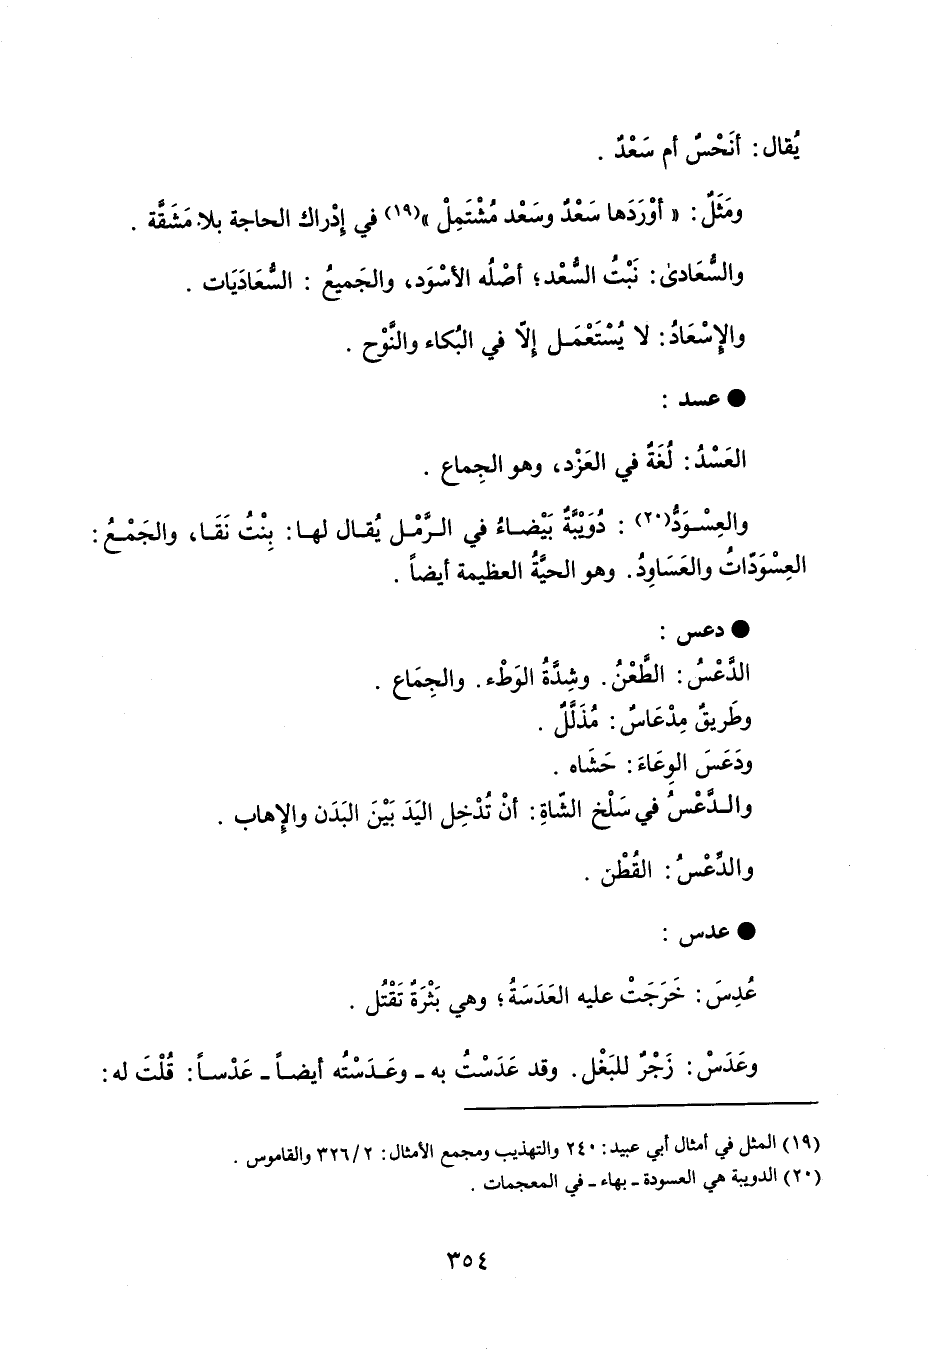 يُقال: أنَحْسٌ أم سَعْدٌ .
ومَثَلٌ: « أوْرَدَها سَعْدٌ وسَعْد مُشْتَمِلْ »(١٩) في إدْراك الحاجة بلا مَشَقَّة .
والسُّعَادىٰ: نَبْتُ السُّعْد؛ أصْلُه الأسْوَد، والجَميعُ : السُّعَادَيَات .
والإسْعَادُ: لا يُسْتَعْمَل إلّا في البُكاء والنَّوْح .
● عسد :
العَسْدُ: لُغَةٌ في العَزْد، وهو الجِماع .
والعِسْوَدُّ(٢٠) : دُوَيْبَّةٌ بَيْضاءُ في الرَّمْل يُقال لها: بِنْتُ نَقَا، والجَمْعُ:
العِسْوَدّاتُ والعَسَاوِدُ. وهو الحيَّةُ العظيمة أيضاً .
● دعس :
الدَّعْسُ: الطَّعْنُ. وشِدَّةُ الوَطْء. والجِمَاع .
وطَريقٌ مِدْعَاسٌ: مُذَلَّلٌ .
ودَعَسَ الوِعَاءَ: حَشَاه .
والدَّعْسُ في سَلْخ الشّاةِ: أنْ تُدْخِل اليَدَ بَيْنَ البَدَن والإهاب .
والدِّعْسُ: القُطْن .
● عدس :
عُدِسَ: خَرَجَتْ عليه العَدَسَةُ؛ وهي بَثْرَةٌ تَقْتُل .
وعَدَسْ: زَجْرٌ للبَغْل. وقد عَدَسْتُ به ـ وعَدَسْتُه أيضاً ـ عَدْساً: قُلْتَ له:
(١٩) المثل في أمثال أبي عبيد: ٢٤٠ والتهذيب ومجمع الأمثال: ٣٢٦/٢ والقاموس .
(٢٠) الدويبة هي العسودة ـ بهاء ـ في المعجمات .
٣٥٤